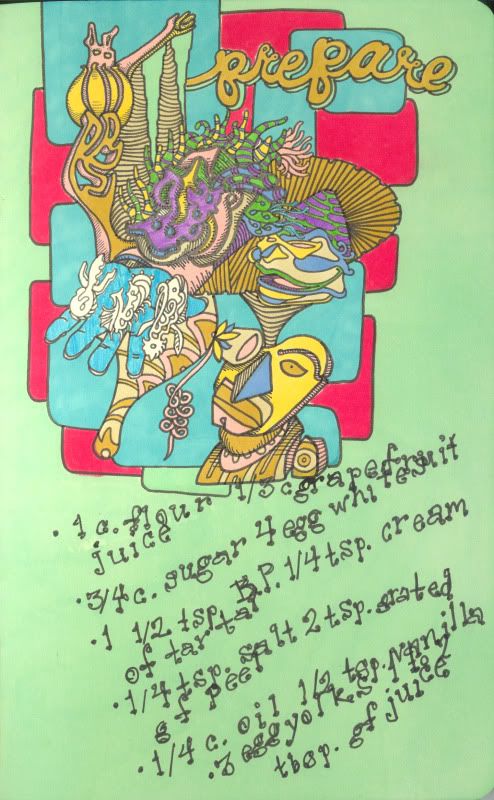 prepare
· 1 c. flour 1/3 c grapefruit
juice
· 3/4 c. sugar 4 egg whites
· 1 1/2 tsp. B.P. 1/4 tsp. cream
of tartar
· 1/4 tsp. salt 2 tsp. grated
gf peel
· 1/4 c. oil 1/2 tsp. vanilla
· 3 egg yolks
tbsp. gf juice